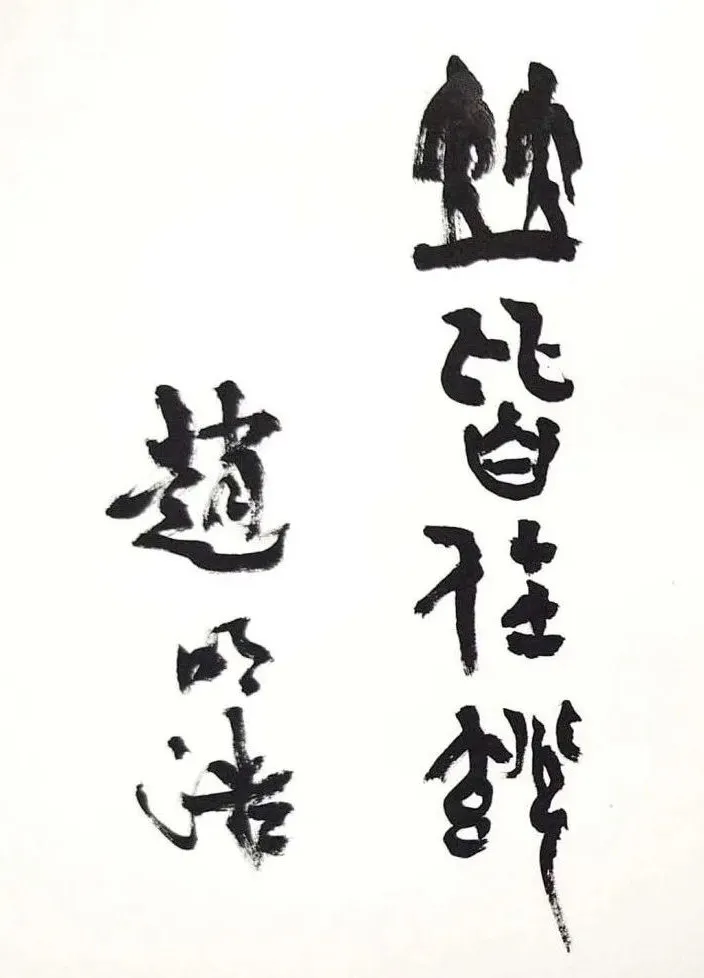 並皆佳玅
趙明浩